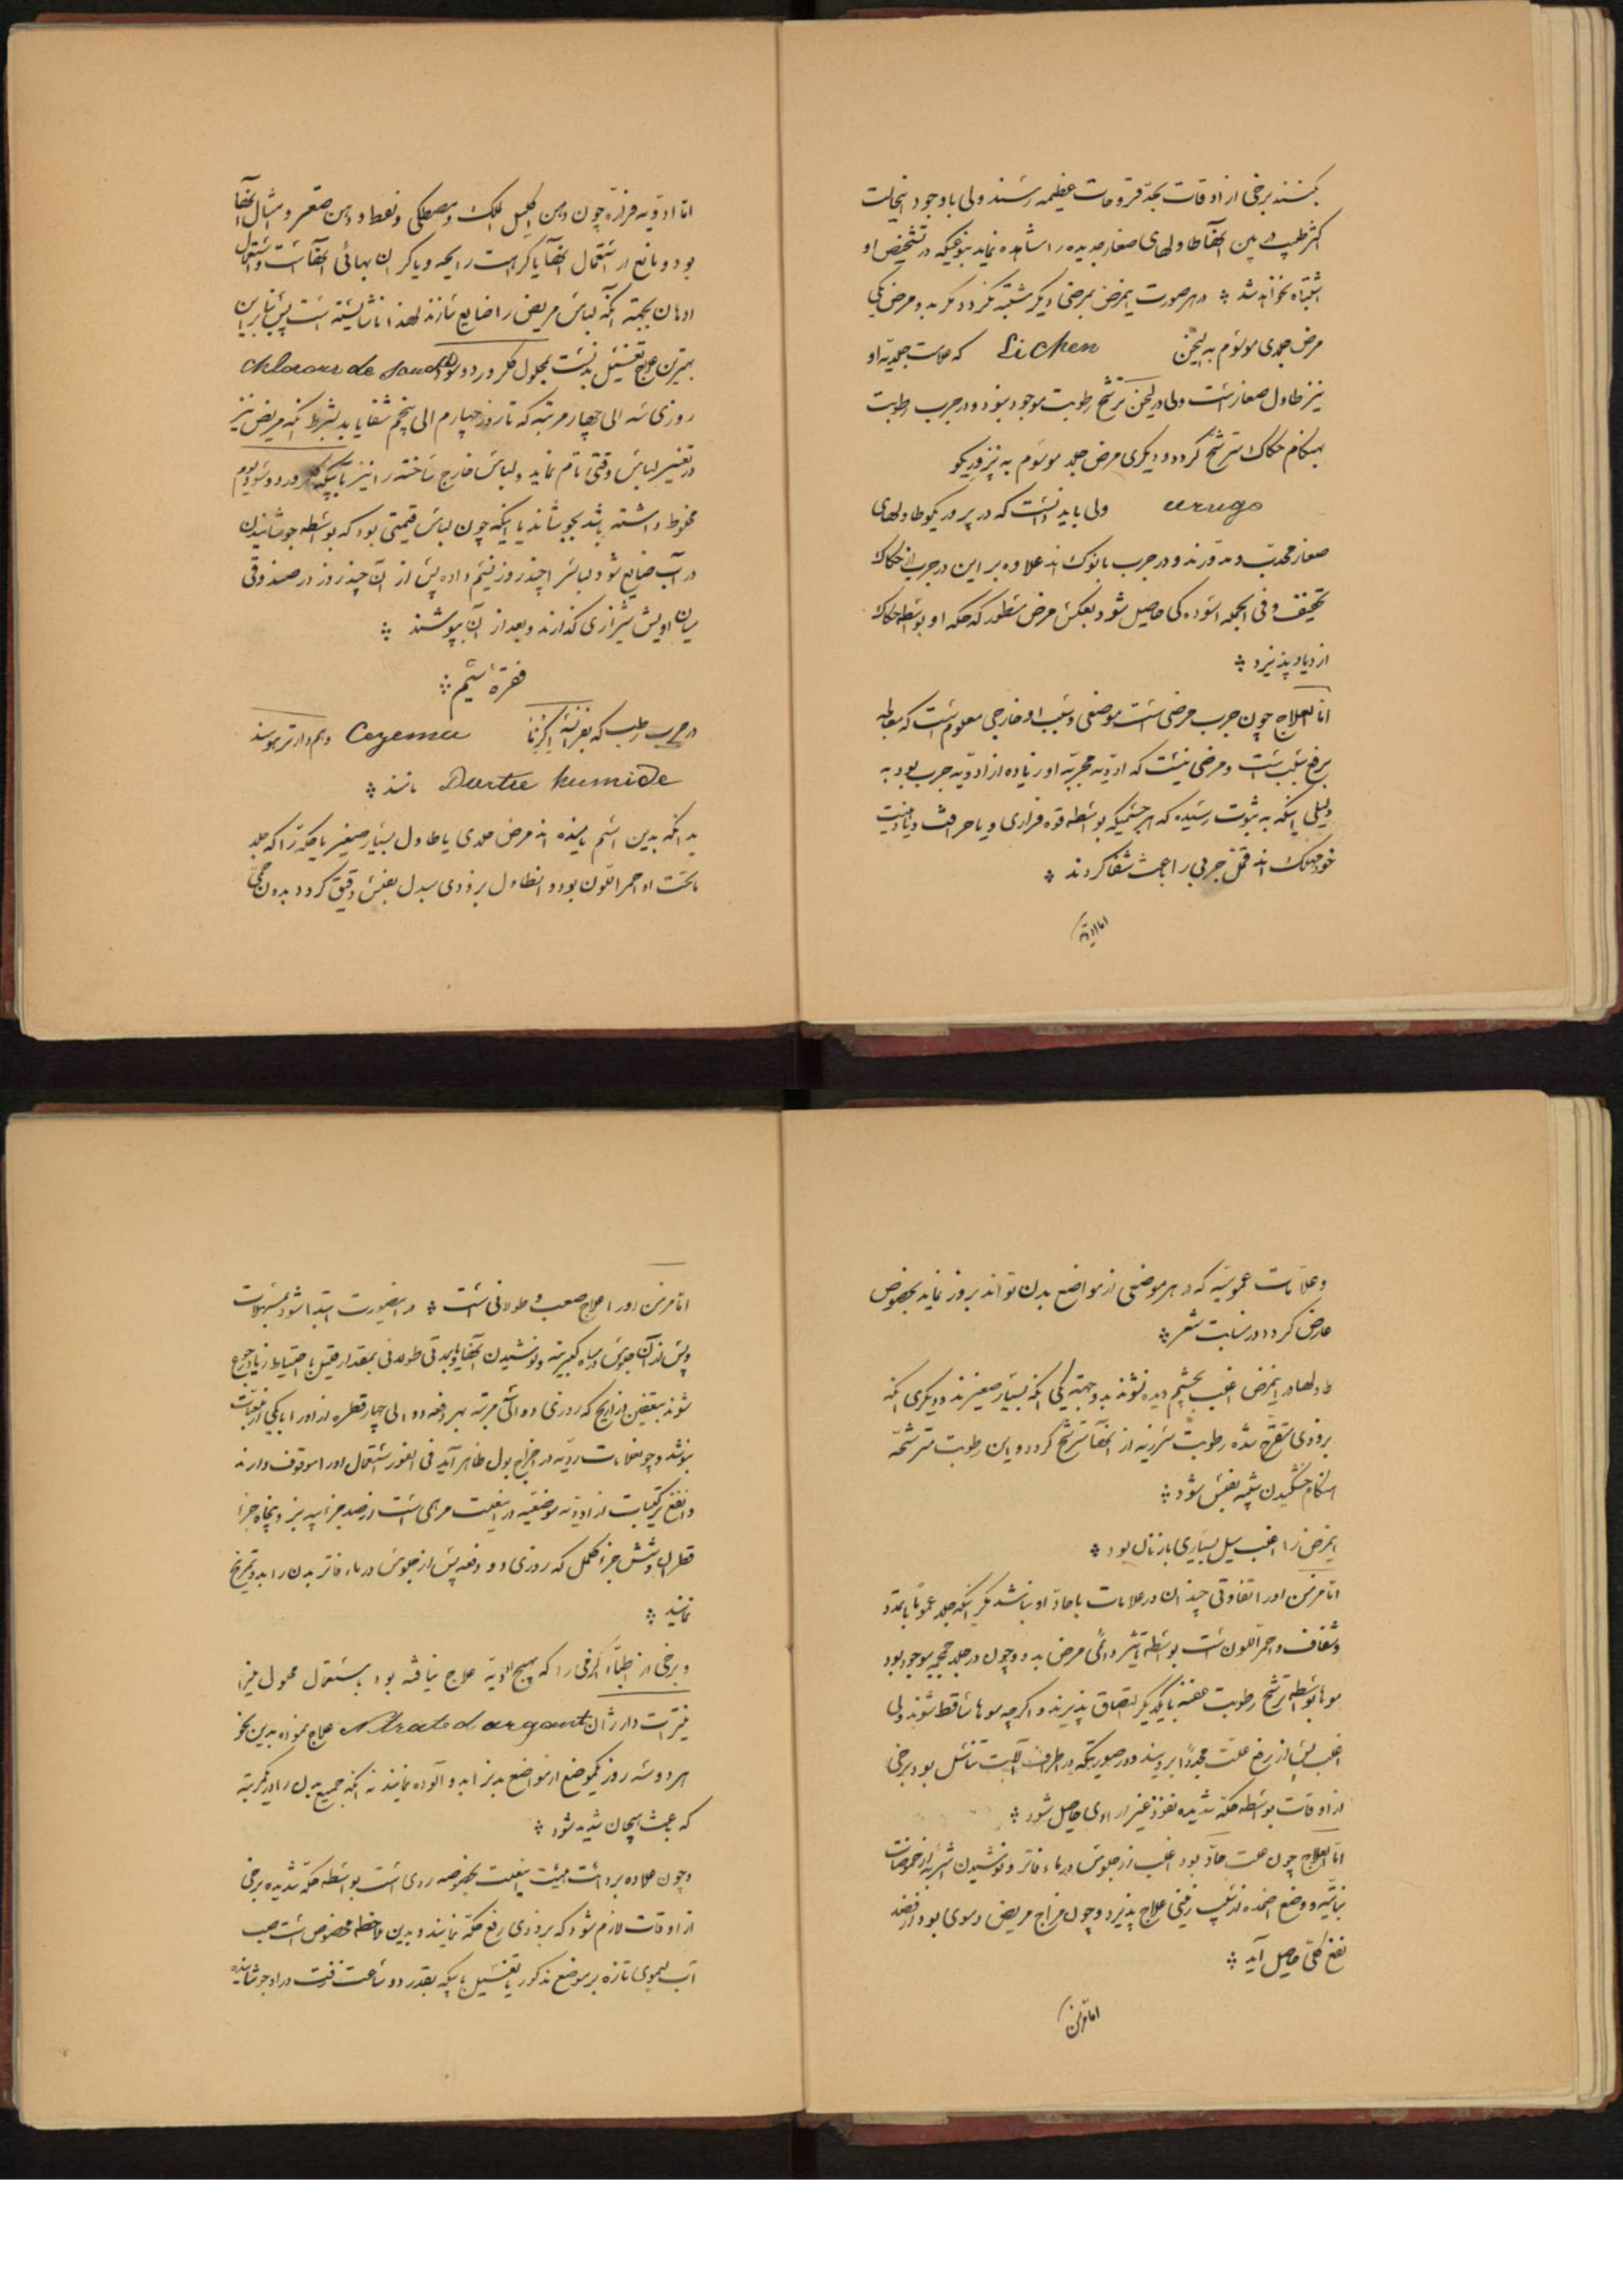 کنند برخی از اوقات بحد قروحات عظیمه رسند ولی با وجود اینحالت
اکثر طبیب در بین آنها طاولهای صغار جدیده را مشاهده نماید بنوعیکه در تشخیص او
اشتباه نخواهد شد ؞ در هر صورت اینمرض بمرضی دیگر مشتبه نگردد مگر بدو مرض یکی
مرض جلدی موسوم به لیخن Lichen که علامت جلدیه او
نیز طاول صغار است ولی در لیخن ترشح رطوبت موجود نبود و در جرب رطوبت
بهنگام حکاک مترشح گردد و دیگری مرض جلد موسوم به پرزوریگو
urugo ولی باید دانست که در پروریگو طاولهای
صغار محدب و مدورند و در جرب با نوک اند علاوه بر این در جرب از حکاک
تخفیف و فی الجمله آسوده کی حاصل شود بعکس مرض مسطور که حکه او بواسطه حکاک
ازدیاد پذیرد ؞
اما العلاج چون جرب مرضی است موضعی و سبب او خارجی معلوم است که معالجه
برفع سبب است و مرضی نیست که ادویه مجربه او زیاده از ادویه جرب بود به
دلیلی اینکه به ثبوت رسیده که هر جسمیکه بواسطه قوه فراری و یا حرافت و یا دهنیت
خود مهلک اند قمل جربی را باعث شفا گردند ؞
اما ادویه
اما ادویه فراره چون دهن اکلیل الملک و مصطکی و نفط و دهن صعتر و امثال آنها
بود و مانع از استعمال آنها یا کراهت رایحه و یا گران بهائی آنها است و استعمال
ادهان بجهة آنکه لباس مریض را ضایع سازند لهذا ناشایسته است پس بنابراین
بهترین علاج تغسیل بدنست بمحلول کلرور دو سود chlorour de soude
روزی سه الی چهار مرتبه که تا روز چهارم الی پنجم شفا یابد بشرط آنکه مریض نیز
در تغییر لباس دقتی تام نماید و لباس خارج ساخته را نیز با آبیکه کلرور دو سودیوم
مخلوط داشته باشد بجوشاند یا اینکه چون لباس قیمتی بود که بواسطه جوشانیدن
در آب ضایع شود لباسرا چند روز نسیم داده پس از آن چند روز در صندوقی
میان آویشن شیرازی گذارند و بعد از آن بپوشند ؞
فقره سیم ؞
در جرب رطب که بفرانسه اکزما Cezema و هم دارتر هومید
Dartre humide نامند ؞
بدانکه بدین اسم نامیده اند مرض جلدی با طاول بسیار صغیر با حکه را که جلد
ماتحت او احمر اللون بود و انطاول بزودی مبدل بفلس دقیق گردد بدون حمی
وعلامات عمومیه که در هر موضعی از مواضع بدن تواند بروز نماید بخصوص
عارض گردد در منابت شعر ؞
طاولها در اینمرض اغلب بچشم دیده نشوند بدو جهة یکی آنکه بسیار صغیرند و دیگری آنکه
بزودی متقرح شده رطوبت لزجیه از آنها مترشح گردد و این رطوبت مترشحه
هنگام خشکیدن شبیه بفلس شود ؞
اینمرض را اغلب میل بسیاری با زنان بود ؞
اما مزمن او را تفاوتی چندان در علامات با حاد او نباشد مگر اینکه جلد عموما با تمدد
و شفاف و احمر اللون است بواسطه تأثیر دائمی مرض بدو و چون در جلد جمجمه موجود بود
موها بواسطه ترشح رطوبت عفنه بایکدیگر التصاق پذیرند و اگر چه موها ساقط شوند ولی
اغلب پس از رفع علت مجددا برویند و در صورتیکه در اطراف آلیت تناسل بود برخی
از اوقات بواسطه حکه شدیده نفوذ غیر ارادی حاصل شود ؞
اما العلاج چون علت حاد بود اغلب از جلوس در ماء فاتر و نوشیدن اشربه از حموضات
نباتیه و وضع اضمده نرم لینی علاج پذیرد و چون مزاج مریض دموی بود از فصد
نفع کلی حاصل آید ؞
اما مزمن
اما مزمن او را علاج صعب و طولانی است ؞ در اینصورت ابتدا شود بمسهلات
و پس از آن جلوس در میاه کبریتیه و نوشیدن آنها یا بمدتی طولانی بمقدار قلیل با احتیاط زیاد رجوع
شوند بتعفین زرنیخ که روزی دو الی سه مرتبه بهر دفعه دو الی چهار قطره از او را با یکی از لعابات
بنوشد و چون علامات ردیه در اخراج بول ظاهر آید فی الفور استعمال او را موقوف دارند
و انفع ترکیبات از ادویه موضعیه در اینعلت مرهمی است از صد جزء پیه بز و پنجاه جزء
قطران و شش جزء کلمل که روزی دو دفعه پس از جلوس در ماء فاتر بدن را بدو تمریخ
نمایند ؞
و برخی از اطباء اگزمی را که بهیچ ادویه علاج نیافته بود باستعمال محلول نیترا
نیترات دارژان Nitrate d argant علاج نموده بدین نحو
هر دو سه روز یکموضع از مواضع بدنرا بدو آلوده نمایند نه آنکه جمیع بدن را در یکمرتبه
که باعث هیجان شدید شود ؞
و چون علاوه بر دائت هیئت اینعلت بخصوصه ردی است بواسطه حکه شدیده برخی
از اوقات لازم شود که بزودی رفع حکه نمایند و بدین ملاحظه مخصوص است صب
آب لیموی تازه بر موضع مذکور یا تغسیل بآبیکه بقدر دو ساعت زفت در او جوشانیده